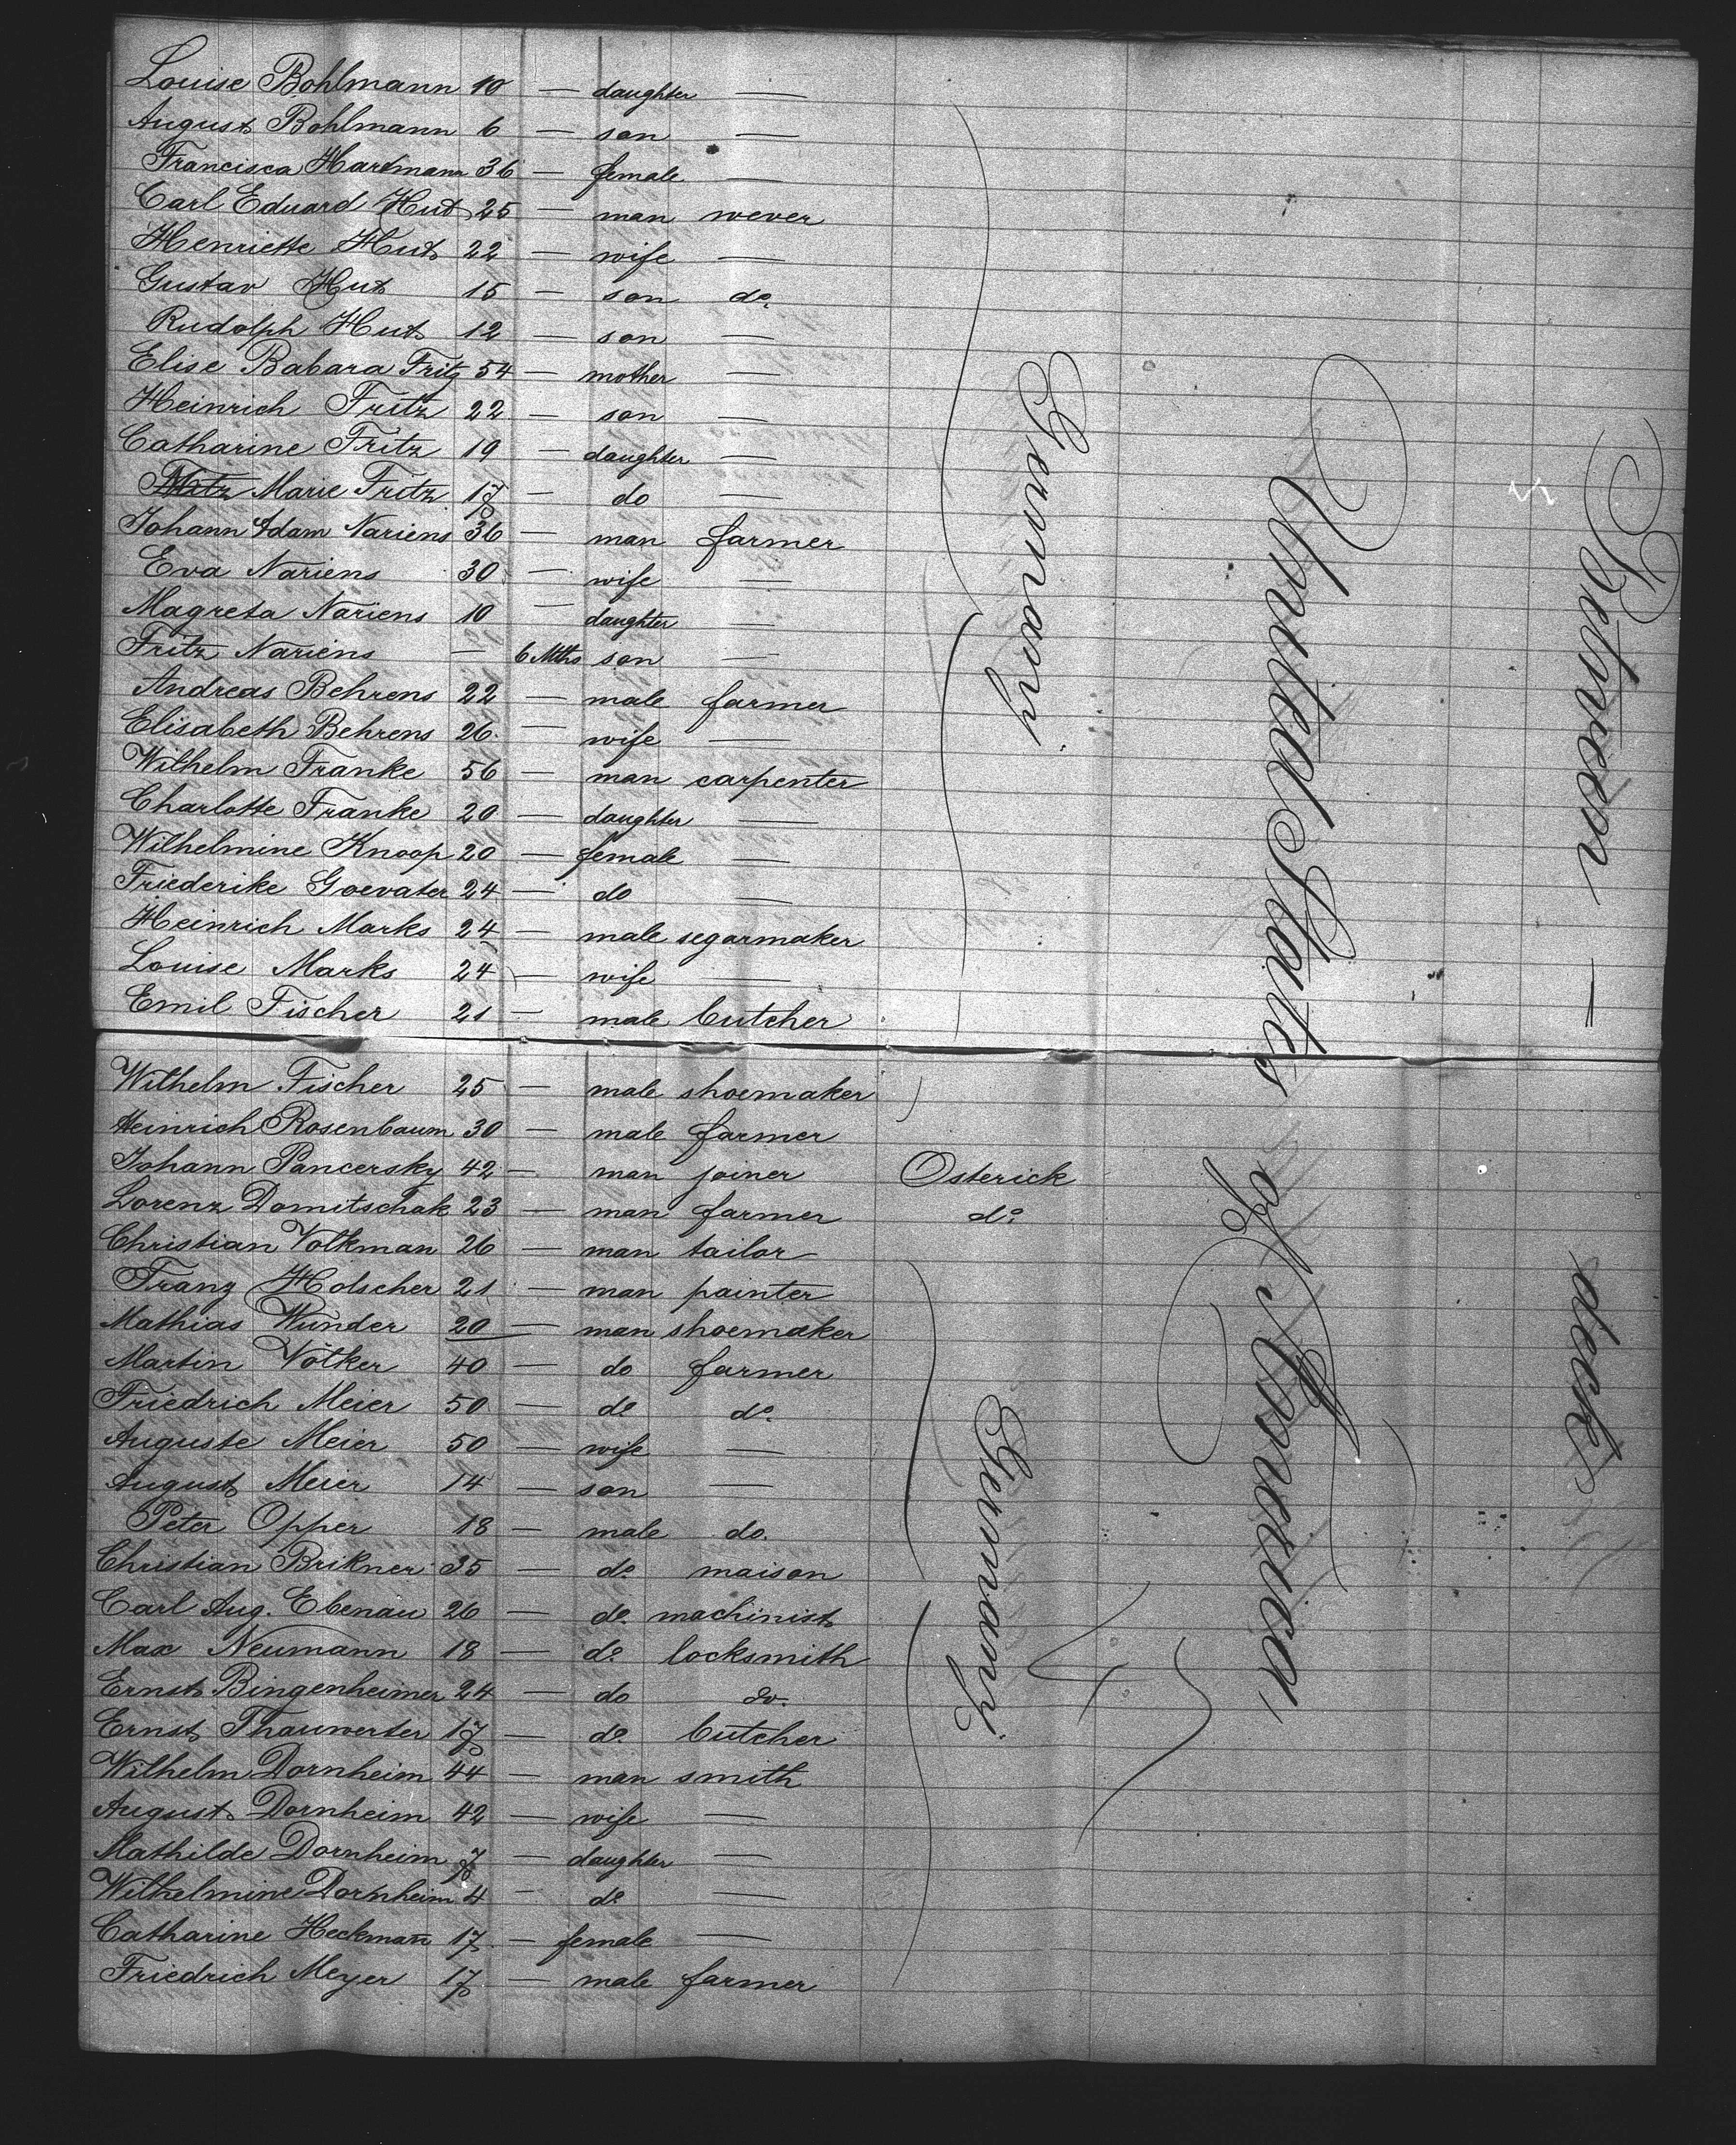 Louise Bohlmann 10 — daughter —
August Bohlmann 6 — son —
Francisca Hartmann 36 — female —
Carl Eduard Hut 25 — man wever
Henriette Hut 22 — wife —
Gustav Hut 15 — son do.
Rudolph Hut 12 — son —
Elise Babara Fritz 54 — mother —
Heinrich Fritz 22 — son —
Catharine Fritz 19 — daughter —
Marie Fritz 17 — do —
Johann Adam Nariens 36 — man farmer
Eva Nariens 30 — wife —
Magreta Nariens 10 — daughter —
Fritz Nariens — 6 Mths son —
Andreas Behrens 22 — male farmer
Elisabeth Behrens 26 — wife —
Wilhelm Franke 56 — man carpenter
Charlotte Franke 20 — daughter —
Wilhelmine Knoop 20 — female —
Friederike Goevater 24 — do —
Heinrich Marks 24 — male segarmaker
Louise Marks 24 — wife —
Emil Fischer 21 — male butcher
Germany.
United States of America,
Between — deck
Wilhelm Fischer 25 — male shoemaker
Heinrich Rosenbaum 30 — male farmer
Johann Pancersky 42 — man joiner Osterick
Lorenz Domitschak 23 — man farmer do.
Christian Volkman 26 — man tailor
Franz Holscher 21 — man painter
Mathias Wunder 20 — man shoemaker
Martin Völker 40 — do farmer
Friedrich Meier 50 — do. do.
Auguste Meier 50 — wife —
August Meier 14 — son —
Peter Opper 18 — male do.
Christian Brikner 35 — do. maison
Carl Aug. Ebenau 26 — do. machinist
Max Neumann 18 — do. locksmith
Ernst Bingenheimer 24 — do do.
Ernst Thauwerter 17 — do. butcher
Wilhelm Dornheim 44 — man smith
August Dornheim 42 — wife —
Mathilde Dornheim 7 — daughter —
Wilhelmine Dornheim 4 — do. —
Catharine Heckmann 17 — female —
Friedrich Meyer 17 — male farmer
Germany.